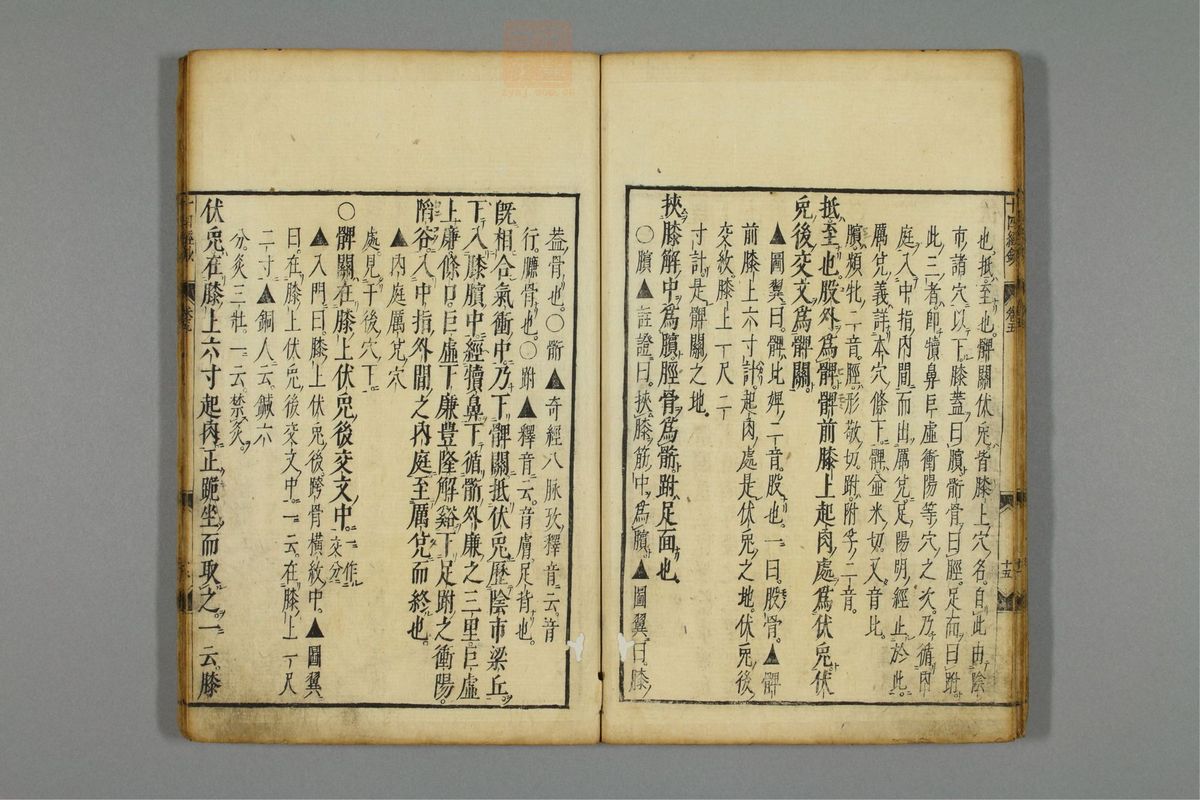 也抵至也。髀關伏兎皆膝上穴名。自此由陰
市諸穴以下。膝蓋曰臏。䯒骨曰脛。足面曰跗。
此三者即犢鼻巨虛衝陽等穴之次。乃循內
庭入中指內間而出厲兊。足陽明經止於此。
厲兊義詳本穴條下。髀並米切。又音比。
臏頻牝二音。脛形敬切。跗附孚二音。
抵至也。股外爲髀。髀前膝上起肉處爲伏兎。伏
兎後交文爲髀關。
▲圖翼曰。髀比婢二音。股也。一曰。股骨。▲髀
前膝上六寸計。起肉處是伏兎之地。伏兎後
交紋。膝上一尺二
寸計。是髀關之地。
挾膝解中爲臏。脛骨爲䯒。跗足面也。
〇臏▲註證曰。挾膝筋中爲臏。▲圖翼曰。膝
十四經
卷五
十五
蓋骨也。〇䯒▲奇經八脉攷釋音云。音
行。臁骨也。〇跗▲釋音云。音膚。足背也。
旣相合氣衝中。乃下髀關。抵伏兎。歷陰市梁丘。
下入膝臏中。經犢鼻。下循䯒外廉之三里。巨虛
上廉。條口。巨虛下廉。豊隆。解谿。下足跗之衝陽。
陷谷。入中指外間之內庭。至厲兊而終也。
▲內庭厲兊穴
處。見于後穴下。
〇髀關在膝上伏兎後交文中。一作交分
▲入門曰。膝上伏兎後。跨骨橫紋中。▲圖翼
曰。在膝上伏兎後交文中。一云。在膝上一尺
二寸。▲銅人云。鍼六
分。灸三壯。一云禁灸。
伏兎在膝上六寸起肉。正跪坐而取之。一云。膝